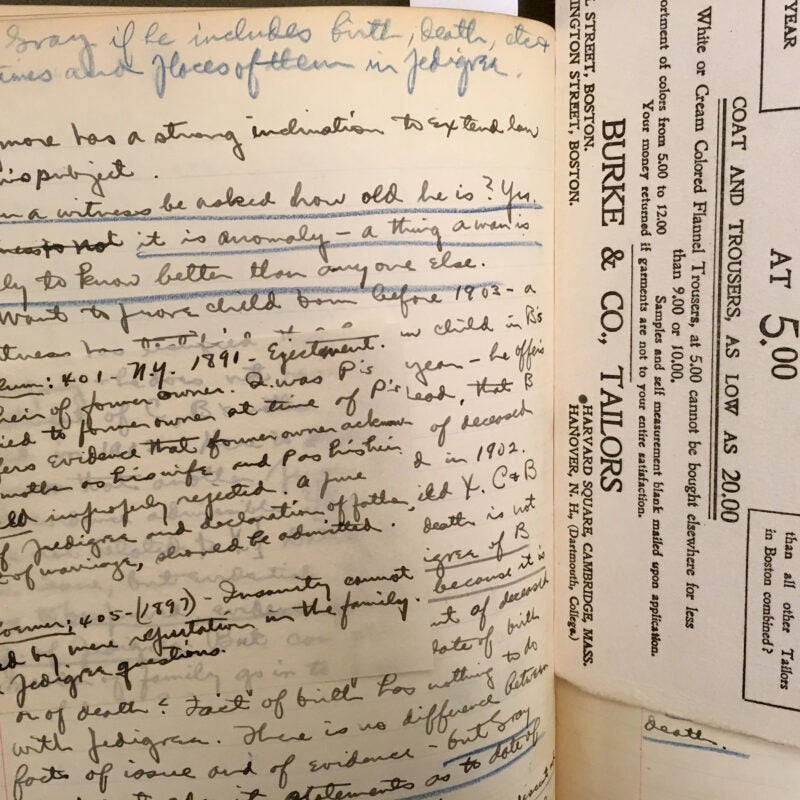 Gray if he includes birth, death, etc &
times and places of them in pedigree.
more has a strong inclination to extend law
his subject.
a witness be asked how old he is? Yes.
it is anomaly - a thing a man is
ly to know better than anyone else.
Want to prove child born before 1903 - a
itness has
401 - N.Y. 1891 - Ejectment.
heir of former owner. D. was P's
ied to former owner at time of P's
fers evidence that former owner acknow
mother as his wife and P as his heir
ld improperly rejected. A pure
of pedigree and declaration of father,
of marriage, should be admitted.
405 - (1897) - Insanity cannot
ed by mere reputation in the family.
pedigree questions.
child in B's
year - he offers
ead, that B
of deceased
d in 1902.
ild X. C & B
death is not
igree of B
because it is
nt of deceased
date of birth
or of death? Fact of birth has nothing to do
with pedigree. There is no difference between
facts of issue and of evidence - but Gray
statements as to date of
death.
YEAR
AT 5.00
COAT AND TROUSERS, AS LOW AS 20.00
White or Cream Colored Flannel Trousers, at 5.00 cannot be bought elsewhere for less
than 9.00 or 10.00.
ortment of colors from 5.00 to 12.00
Samples and self measurement blank mailed upon application.
Your money returned if garments are not to your entire satisfaction.
BURKE & CO., TAILORS
STREET, BOSTON.
INGTON STREET, BOSTON.
HARVARD SQUARE, CAMBRIDGE, MASS.
HANOVER, N. H., (Dartmouth, College.)
than all other Tailors
in Boston combined?